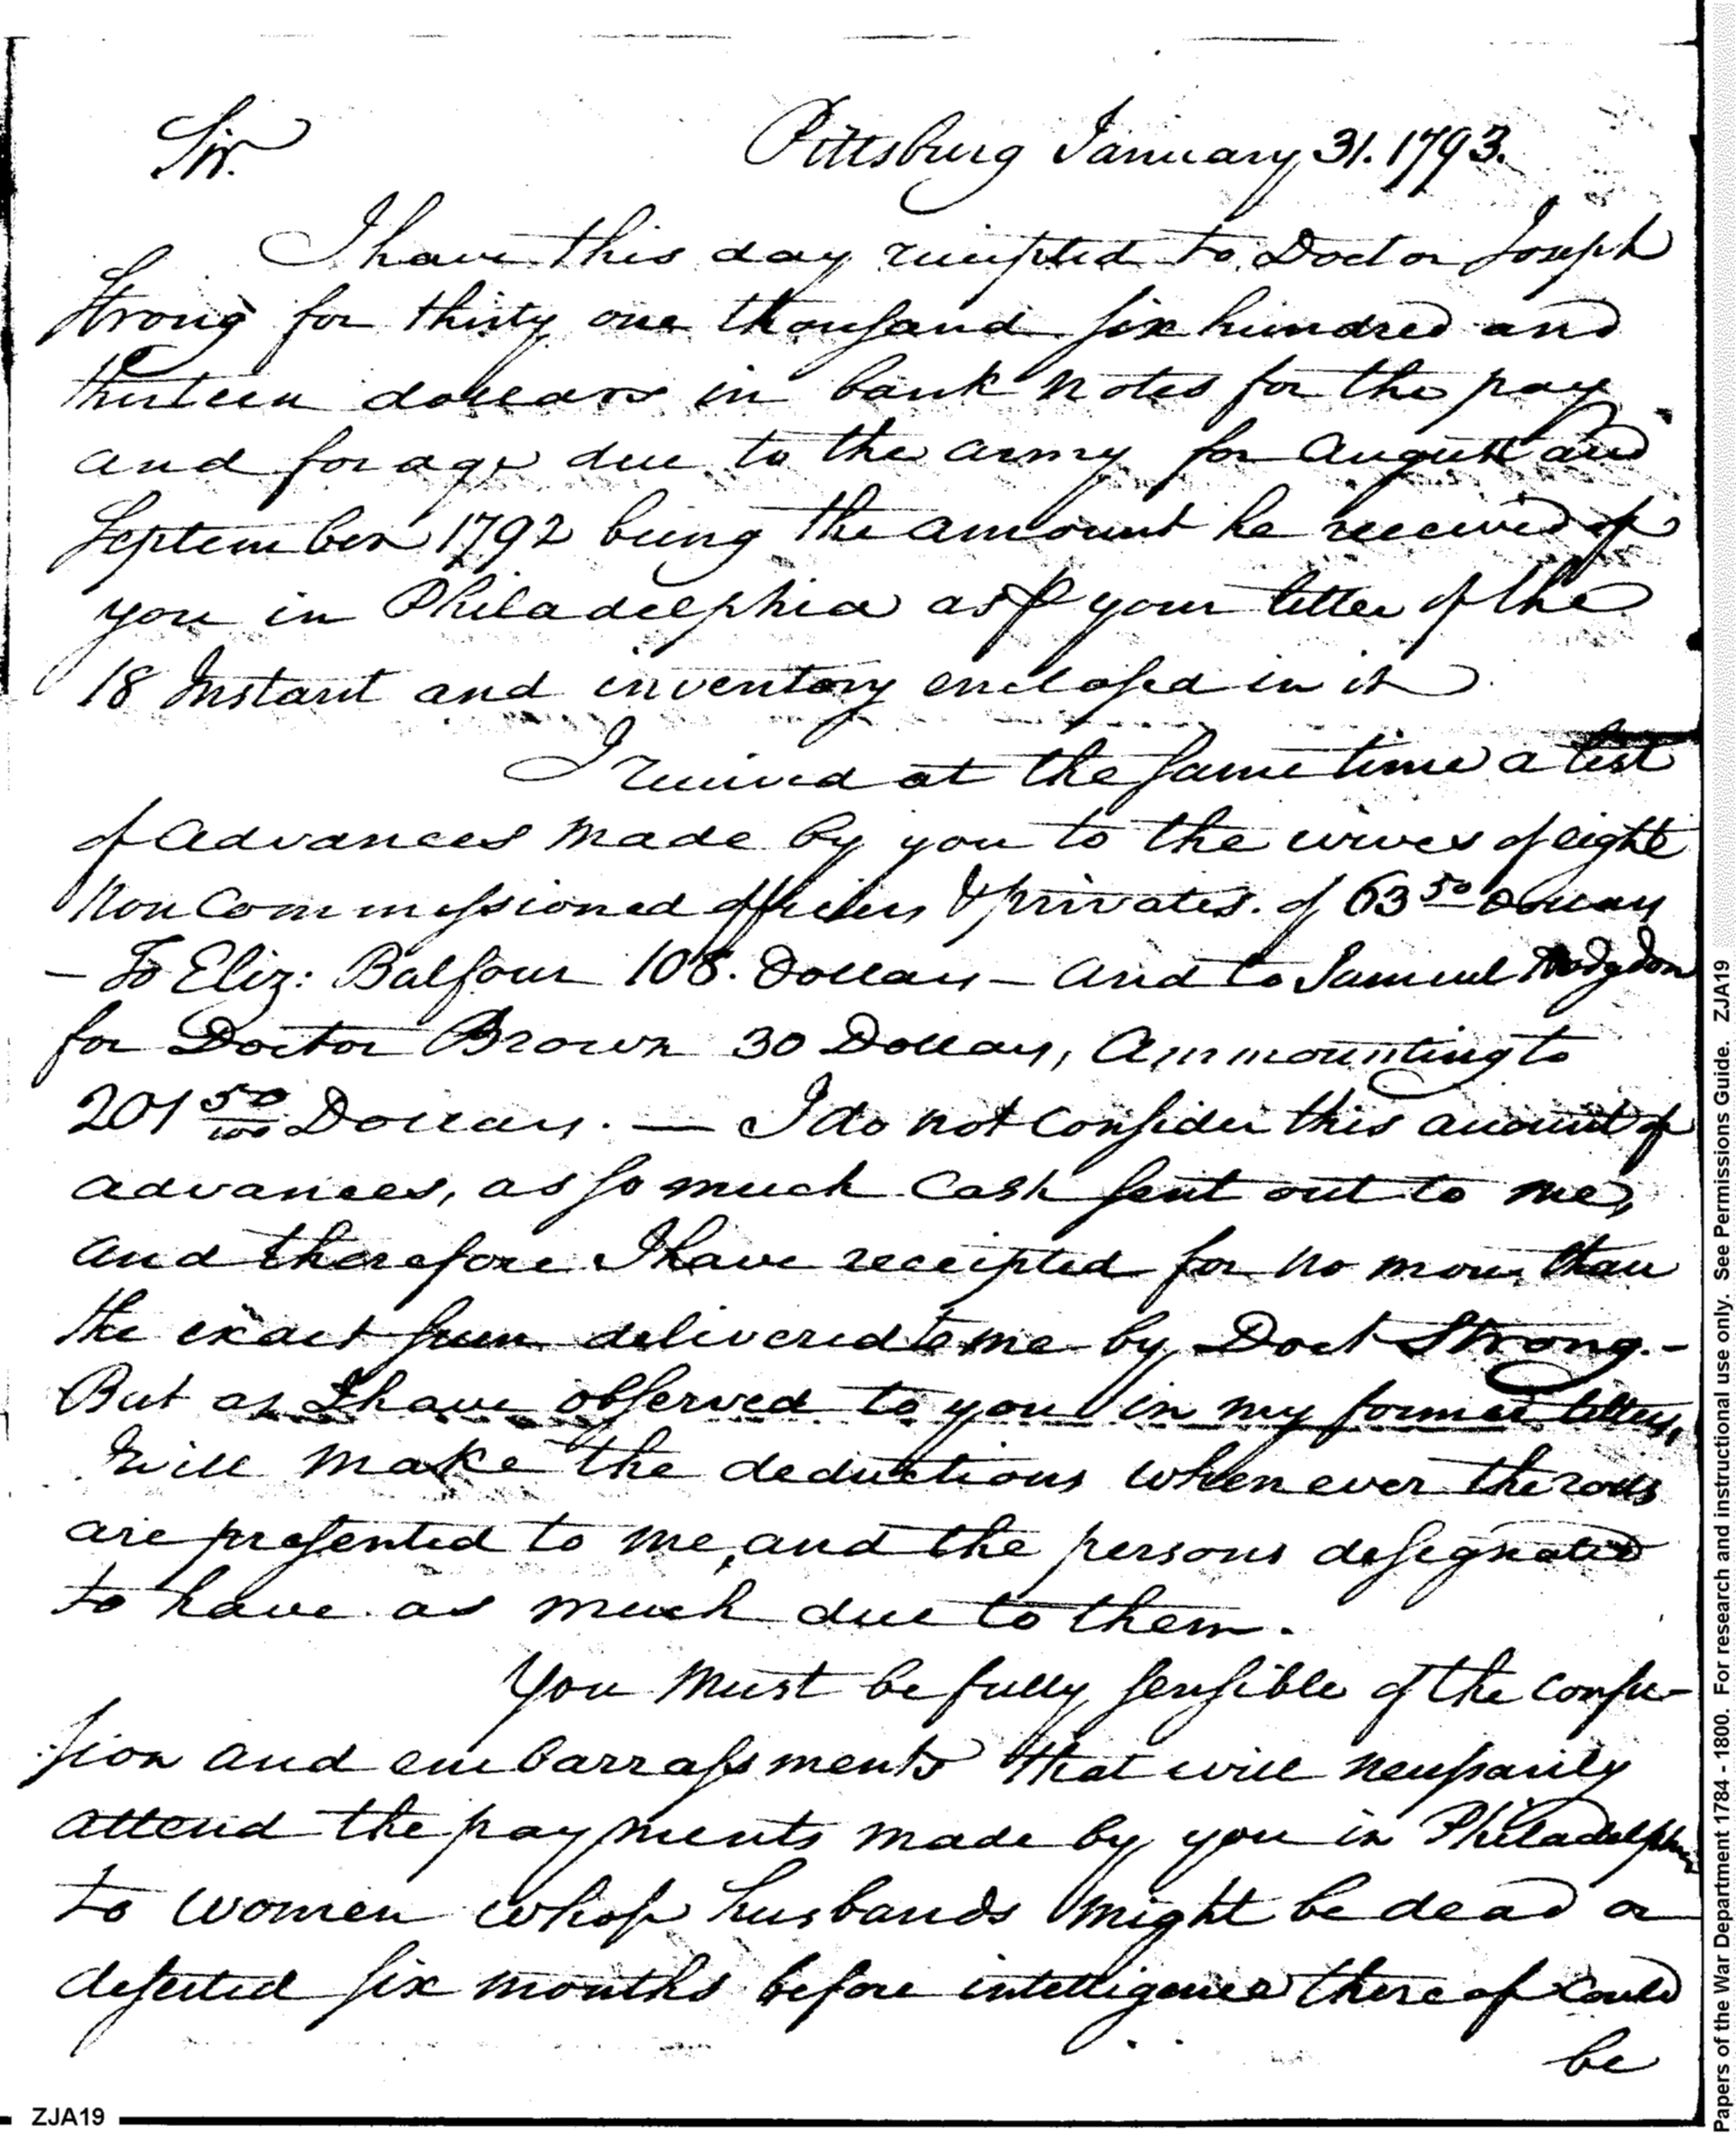 Sir. Pittsburg January 31. 1793.
I have this day receipted to Doctor Joseph
Strong for thirty one thousand six hundred and
thirteen dollars in bank notes for the pay
and forage due to the army for August and
September 1792 being the amount he received of
you in Philadelphia as ⅌ your letter of the
18 Instant and inventory enclosed in it
I received at the same time a list
of advances made by you to the wives of eight
Non Commissioned officers & privates. of 63 50 Dollars
– To Eliz: Balfour 108. Dollars – and to Samuel Hodgdon
for Doctor Brown 30 Dollars, Ammounting to
201 50/100 Dollars. — I do not consider this amount of
advances, as so much Cash sent out to me,
and therefore I have receipted for no more than
the exact sum delivered to me by Doct Strong. –
But as I have observed to you in my former letters,
will make the deductions whenever the rolls
are presented to me, and the persons designated
to have as much due to them.
You must be fully sensible of the confu-
sion and embarrassments that will necessarily
attend the payments made by you in Philadelphia
to women whose husbands might be dead or
deserted six months before intelligence thereof could
be
ZJA19
Papers of the War Department 1784 - 1800. For research and instructional use only. See Permissions Guide. ZJA19